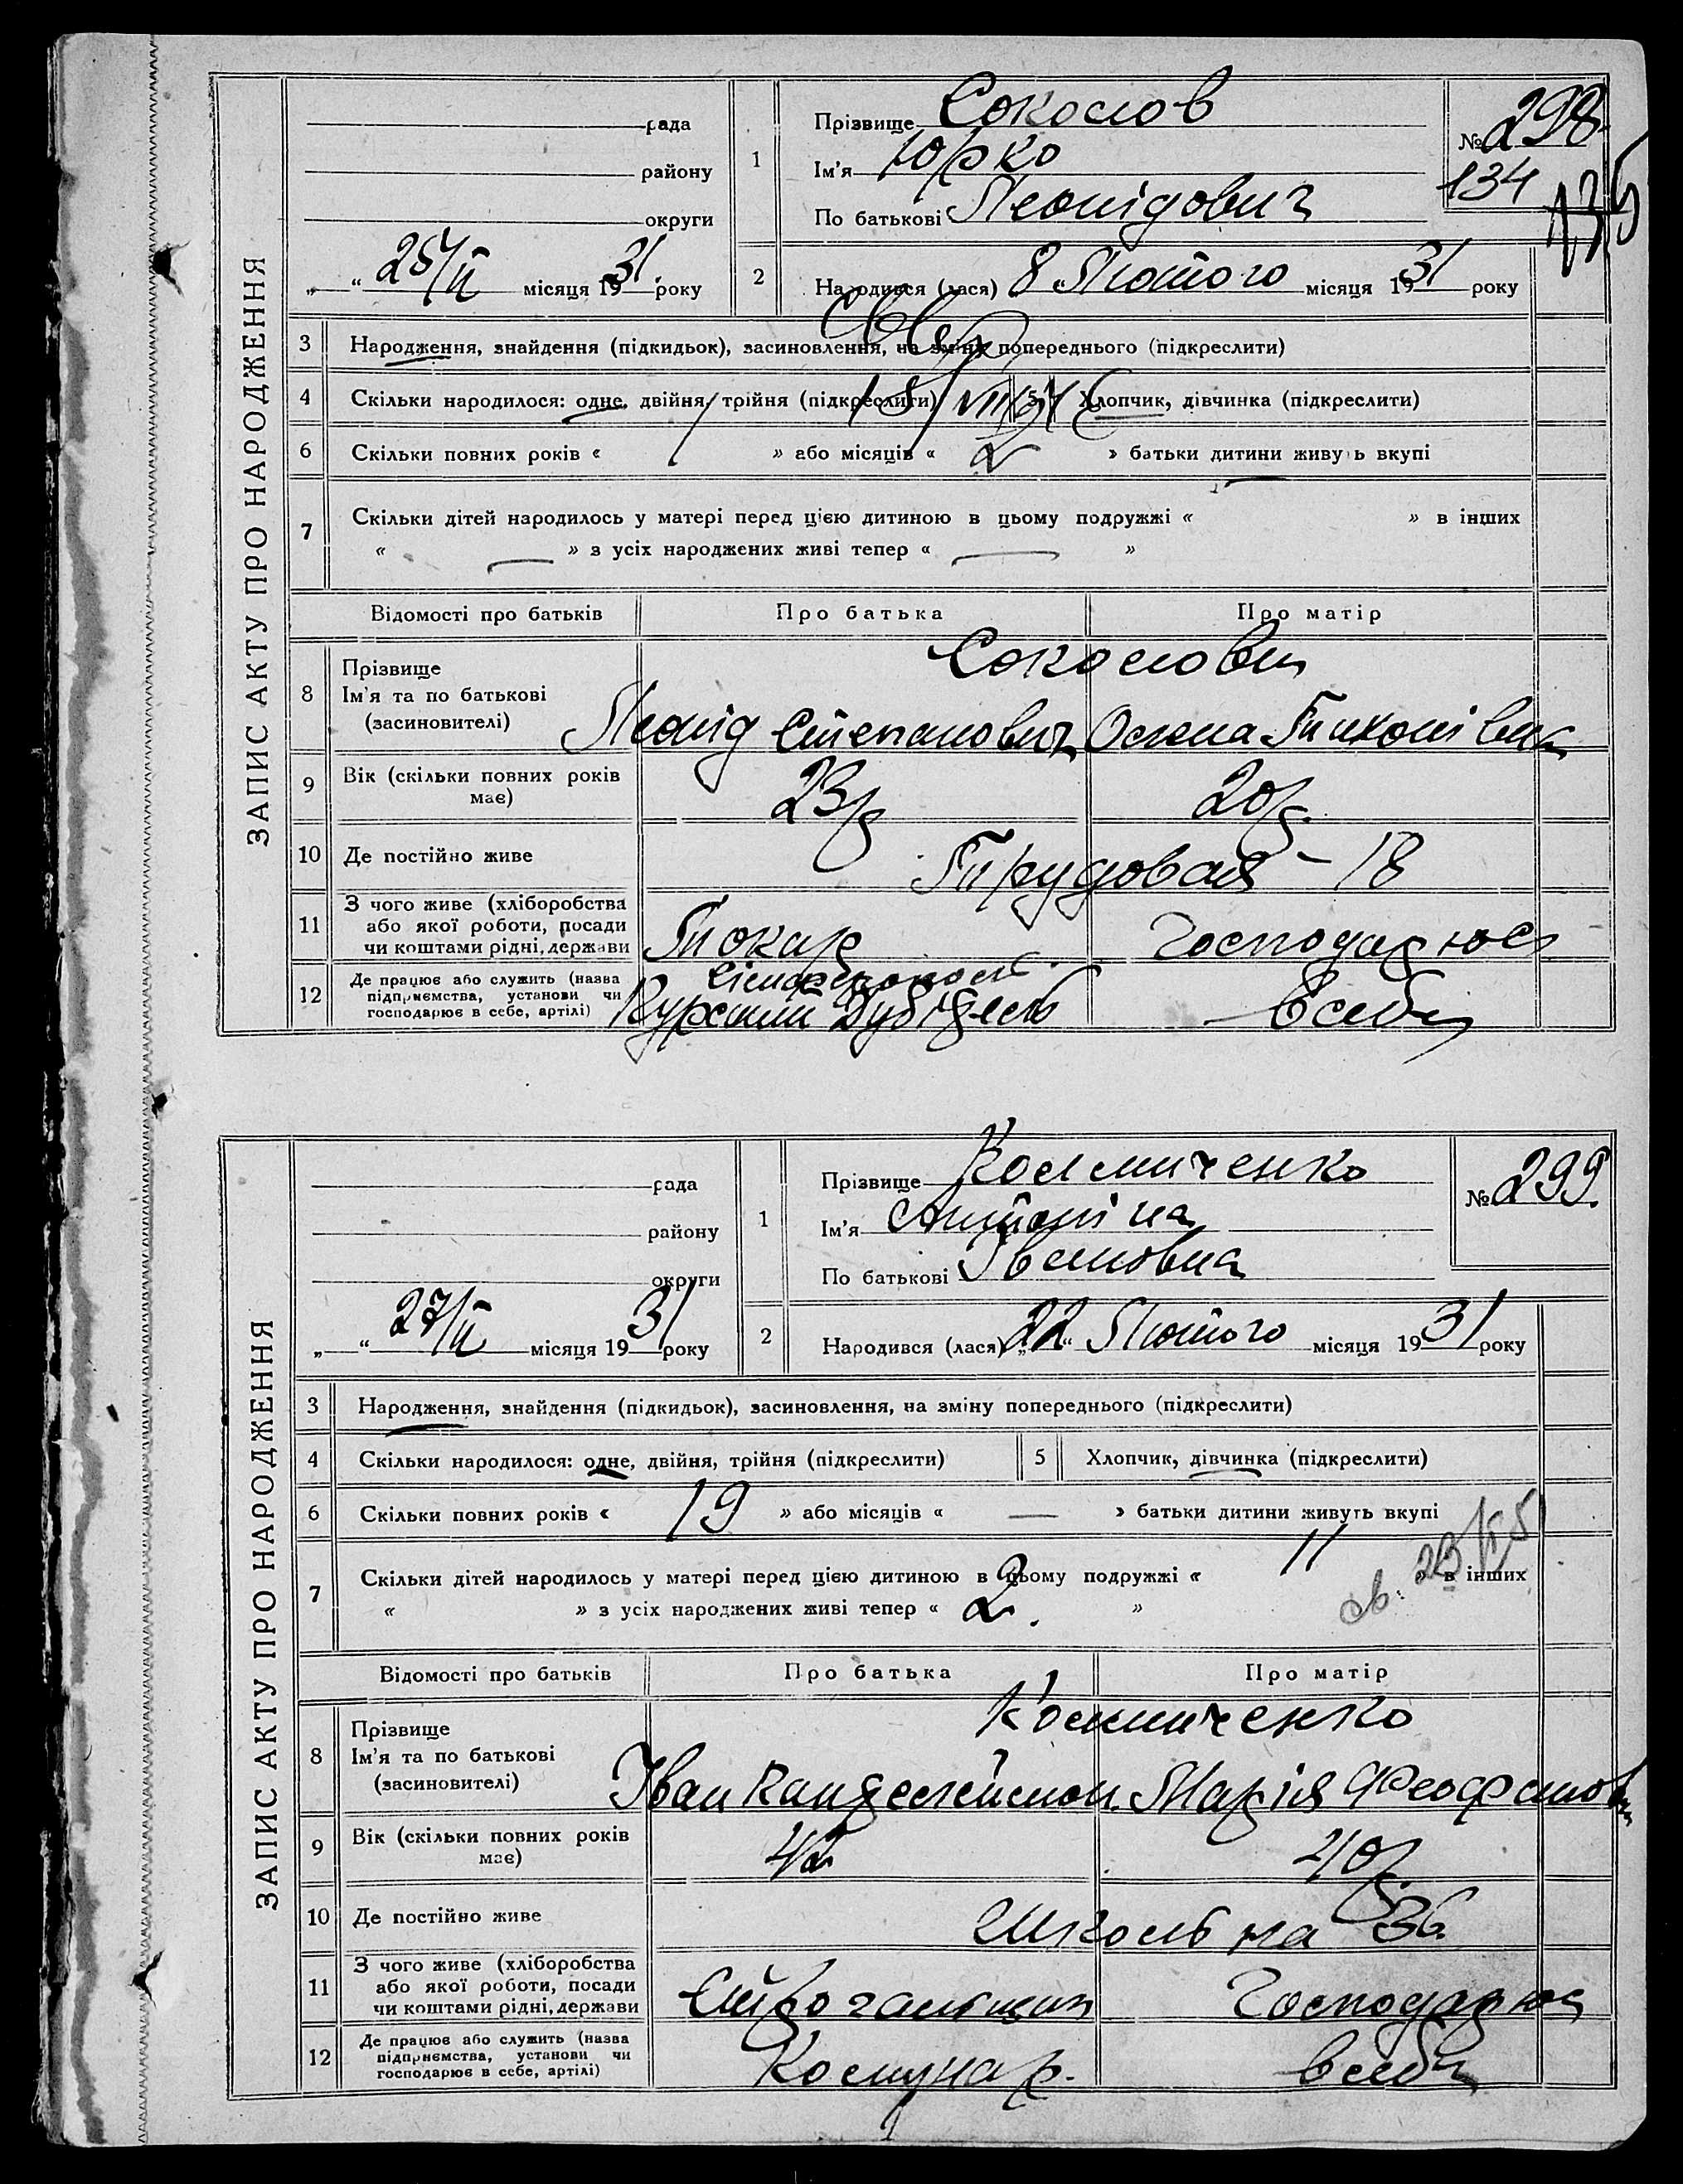 ЗАПИС АКТУ ПРО НАРОДЖЕННЯ
рада
району
округи
„ “ 25/II місяця 1931 року
1
Прізвище Соколов
Ім'я Юрко
По батькові Леонідович
№ 298
134
135
2
Народився (лася) „8“ Лютого місяця 1931 року
3 Народження, знайдення (підкидьок), засиновлення, на зміну попереднього (підкреслити)
4 Скільки народилося: одне, двійня, трійня (підкреслити) 5 Хлопчик, дівчинка (підкреслити)
6 Скільки повних років « 1 » або місяців « 2 » батьки дитини живуть вкупі
7 Скільки дітей народилось у матері перед цією дитиною в цьому подружжі « » в інших
« — » з усіх народжених живі тепер « — »
Відомості про батьків Про батька Про матір
8 Прізвище
Ім'я та по батькові
(засиновителі)
Соколови
Леонід Степанович Тихонівна
9 Вік (скільки повних років має) 23р 20р.
10 Де постійно живе Трудовая – 18
11 З чого живе (хліборобства або якої роботи, посади чи коштами рідні, держави Токар Господарює
12 Де працює або служить (назва підприємства, установи чи господарює в себе, артілі) в себе
ЗАПИС АКТУ ПРО НАРОДЖЕННЯ
рада
району
округи
„ “ 27/II місяця 1931 року
1
Прізвище Колмиченко
Ім'я Антоніна
По батькові Івановна
№ 299.
2
Народився (лася) „22“ Лютого місяця 1931 року
3 Народження, знайдення (підкидьок), засиновлення, на зміну попереднього (підкреслити)
4 Скільки народилося: одне, двійня, трійня (підкреслити) 5 Хлопчик, дівчинка (підкреслити)
6 Скільки повних років « 19 » або місяців « — » батьки дитини живуть вкупі
7 Скільки дітей народилось у матері перед цією дитиною в цьому подружжі « 11 » в інших
« » з усіх народжених живі тепер « 2. »
Відомості про батьків Про батька Про матір
8 Прізвище
Ім'я та по батькові
(засиновителі)
Колмиченко
Іван Марія Феофанов
9 Вік (скільки повних років має) 42 40р.
10 Де постійно живе Школьна 36
11 З чого живе (хліборобства або якої роботи, посади чи коштами рідні, держави Строгальщик Господарює
12 Де працює або служить (назва підприємства, установи чи господарює в себе, артілі) Комунар. в себе